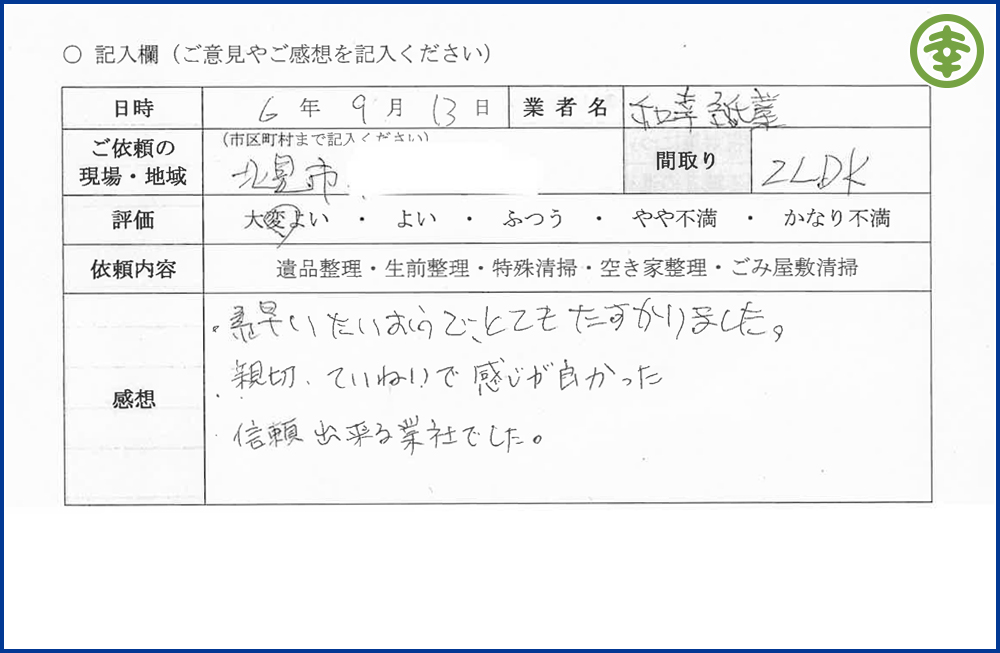 幸
○ 記入欄（ご意見やご感想を記入ください）
日時 6 年 9 月 13 日 業者名 和幸紙業
ご依頼の現場・地域 （市区町村まで記入ください） 北見市 間取り 2LDK
評価 大変よい ・ よい ・ ふつう ・ やや不満 ・ かなり不満
依頼内容 遺品整理・生前整理・特殊清掃・空き家整理・ごみ屋敷清掃
感想
・素早いたいおうでとてもたすかりました。
・親切、ていねいで感じが良かった
・信頼出来る業社でした。